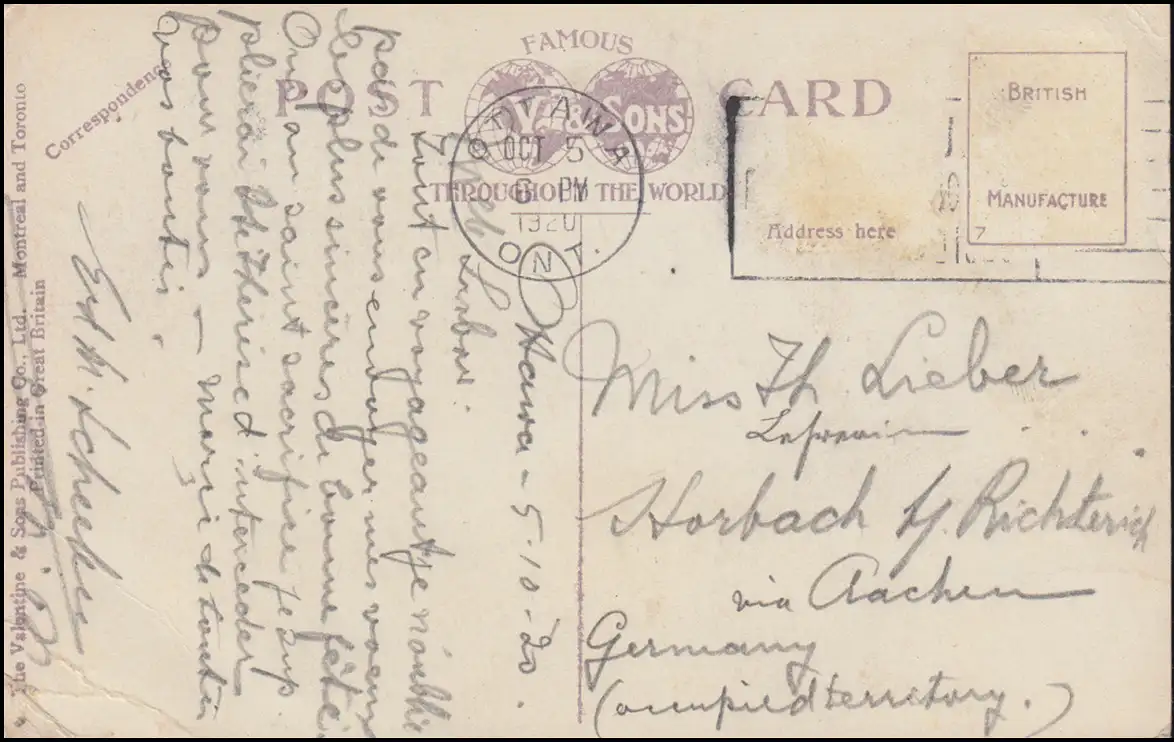 FAMOUS
POST CARD
V. & SONS
THROUGHOUT THE WORLD
OTTAWA
OCT 5
6 PM
1920
ONT.
BRITISH
MANUFACTURE
7
Address here
Correspondence
The Valentine & Sons Publishing Co., Ltd. Montreal and Toronto
Printed in Great Britain
Ottawa - 5-10-20.
Tout en voyageant je n'oublie
pas de vous envoyer mes voeux
les plus sincères de bonne fête.
Au saint sacrifice je sup
plierai Ste Thérèse d'interceder
pour vous - merçi de toutes
vos bontés.
Miss Th Lieber
Horbach b/ Richterich
via Aachen
Germany
(occupied territory.)